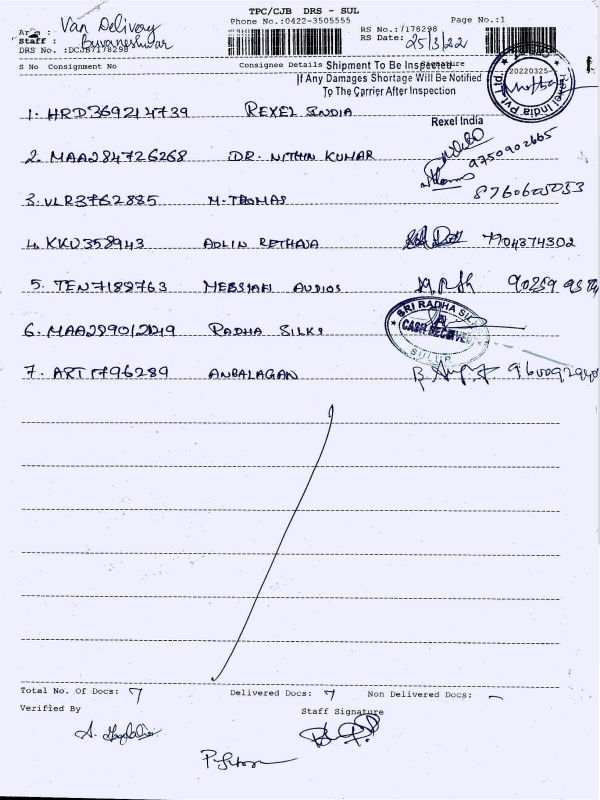 TPC/CJB DRS - SUL
Phone No.:0422-3505555
Page No.:1
Area : Van Delivery
Staff : Buvaneshwar
DRS No. :DCJB7178298
RS No.:7178298
RS Date: 25/3/22
S No Consignment No Consignee Details Signature
Shipment To Be Inspected
If Any Damages Shortage Will Be Notified
To The Carrier After Inspection
20220325-
Rexel India Pvt Ltd
Rexel India
1. HRD369214739 REXEL INDIA
2. MAA284726268 DR. NITHIN KUMAR 9750902665
3. VLR3762885 M. THOMAS 8760605053
4. KKU358943 ADLIN RETHAJA 7704374302
5. TEN7188763 MEBSTAR AUDIOS
SRI RADHA SILKS
CASH RECEIVED
SULUR
6. MAA289012049 RADHA SILKS
7. ART1796289 ANBALAGAN
Total No. Of Docs: 7 Delivered Docs: 7 Non Delivered Docs: -
Verified By Staff Signature